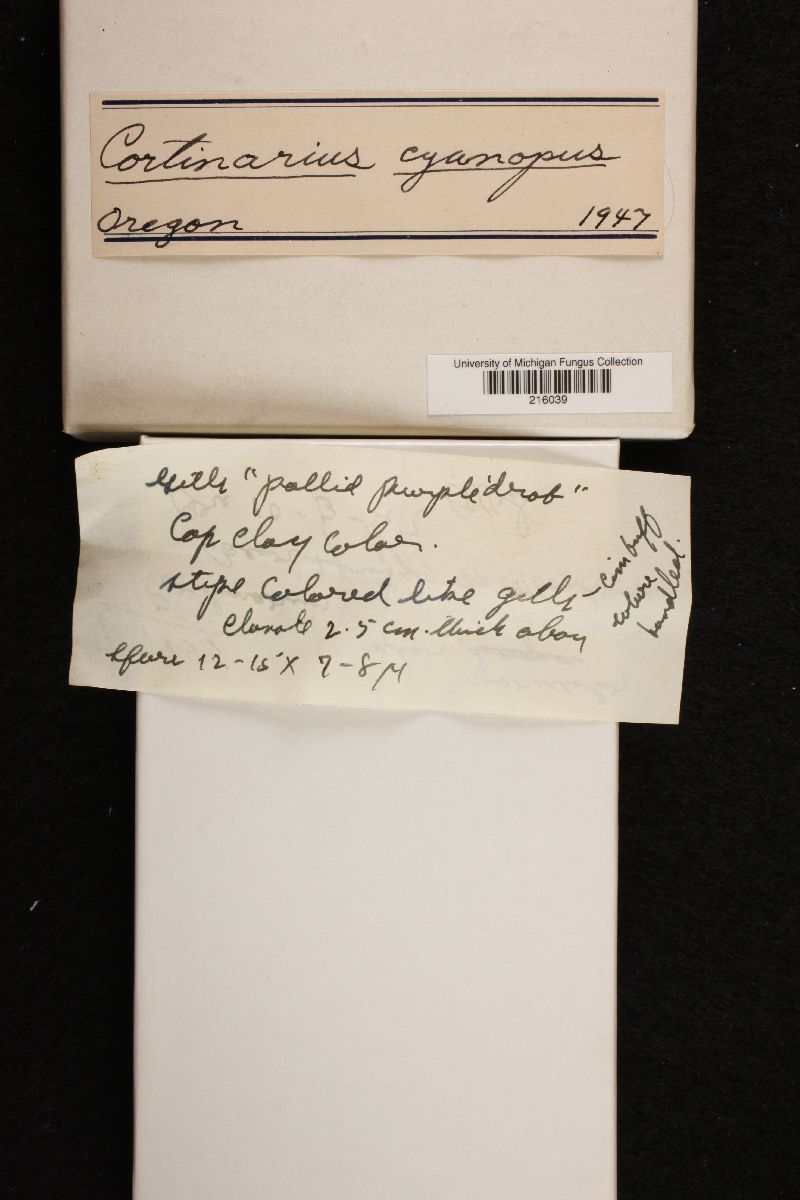 Cortinarius cyanopus
Oregon 1947
University of Michigan Fungus Collection
216039
Gills "pallid purple drab"
Cap clay color.
stipe colored like gills –
buff
where
handled.
clavate 2.5 cm. thick above
spore 12-15 X 7-8 μ